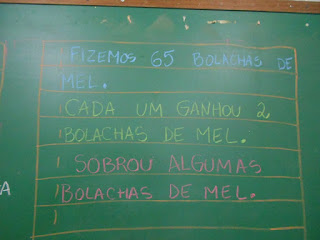 FIZEMOS 65 BOLACHAS DE
MEL.
CADA UM GANHOU 2
BOLACHAS DE MEL.
SOBROU ALGUMAS
BOLACHAS DE MEL.
A